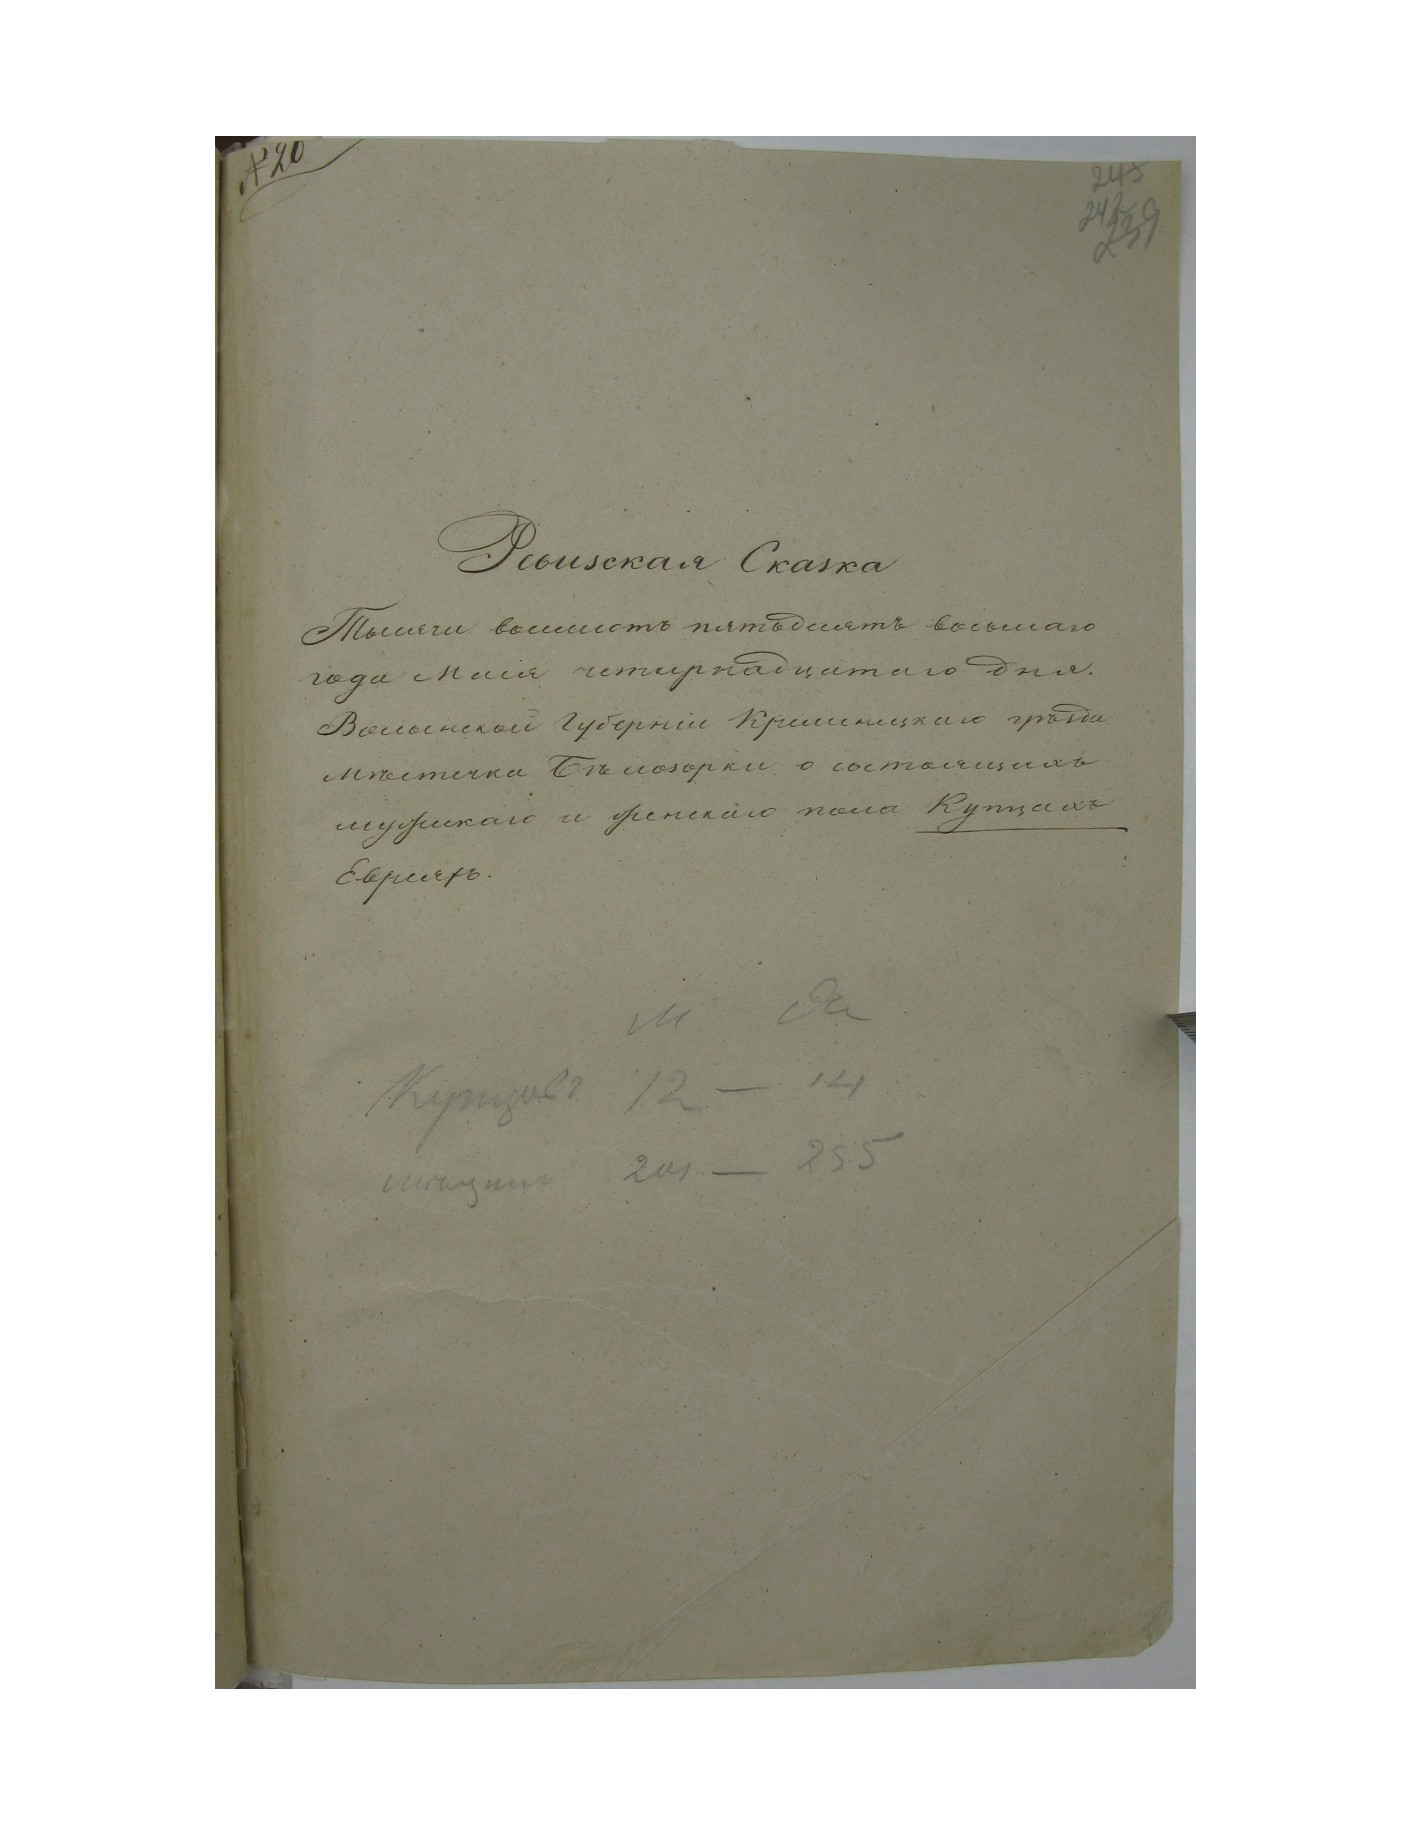 № 20
245
242
239
Ревизская Сказка
Тысячи восмсотъ пятьдесятъ восьмаго
года Маія четирнадцатаго дня.
Волынской Губерніи Кременецкаго уѣзда
мѣстечка Бѣлозорки о состоящихъ
мужскаго и женскаго пола Купцахъ
Евреяхъ.
м
Купцовъ 12 — 14
мещанъ 201 — 255